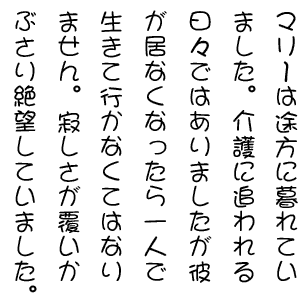 マリーは途方に暮れてい
ました。介護に追われる
日々ではありましたが彼
が居なくなったら一人で
生きて行かなくてはなり
ません。寂しさが覆いか
ぶさり絶望していました。